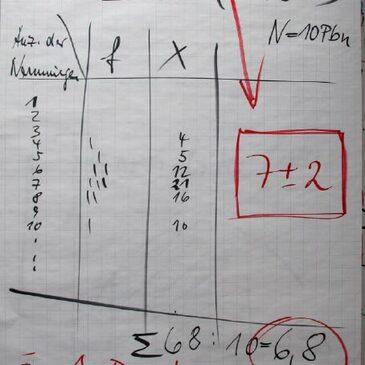 Anz. der
Nennungen f X N=10 Pbn
1
2
3
4 I 4
5 I 5
6 II 12
7 III 21
8 II 16
9
10 I 10
7±2
Σ 68 : 10 = 6,8